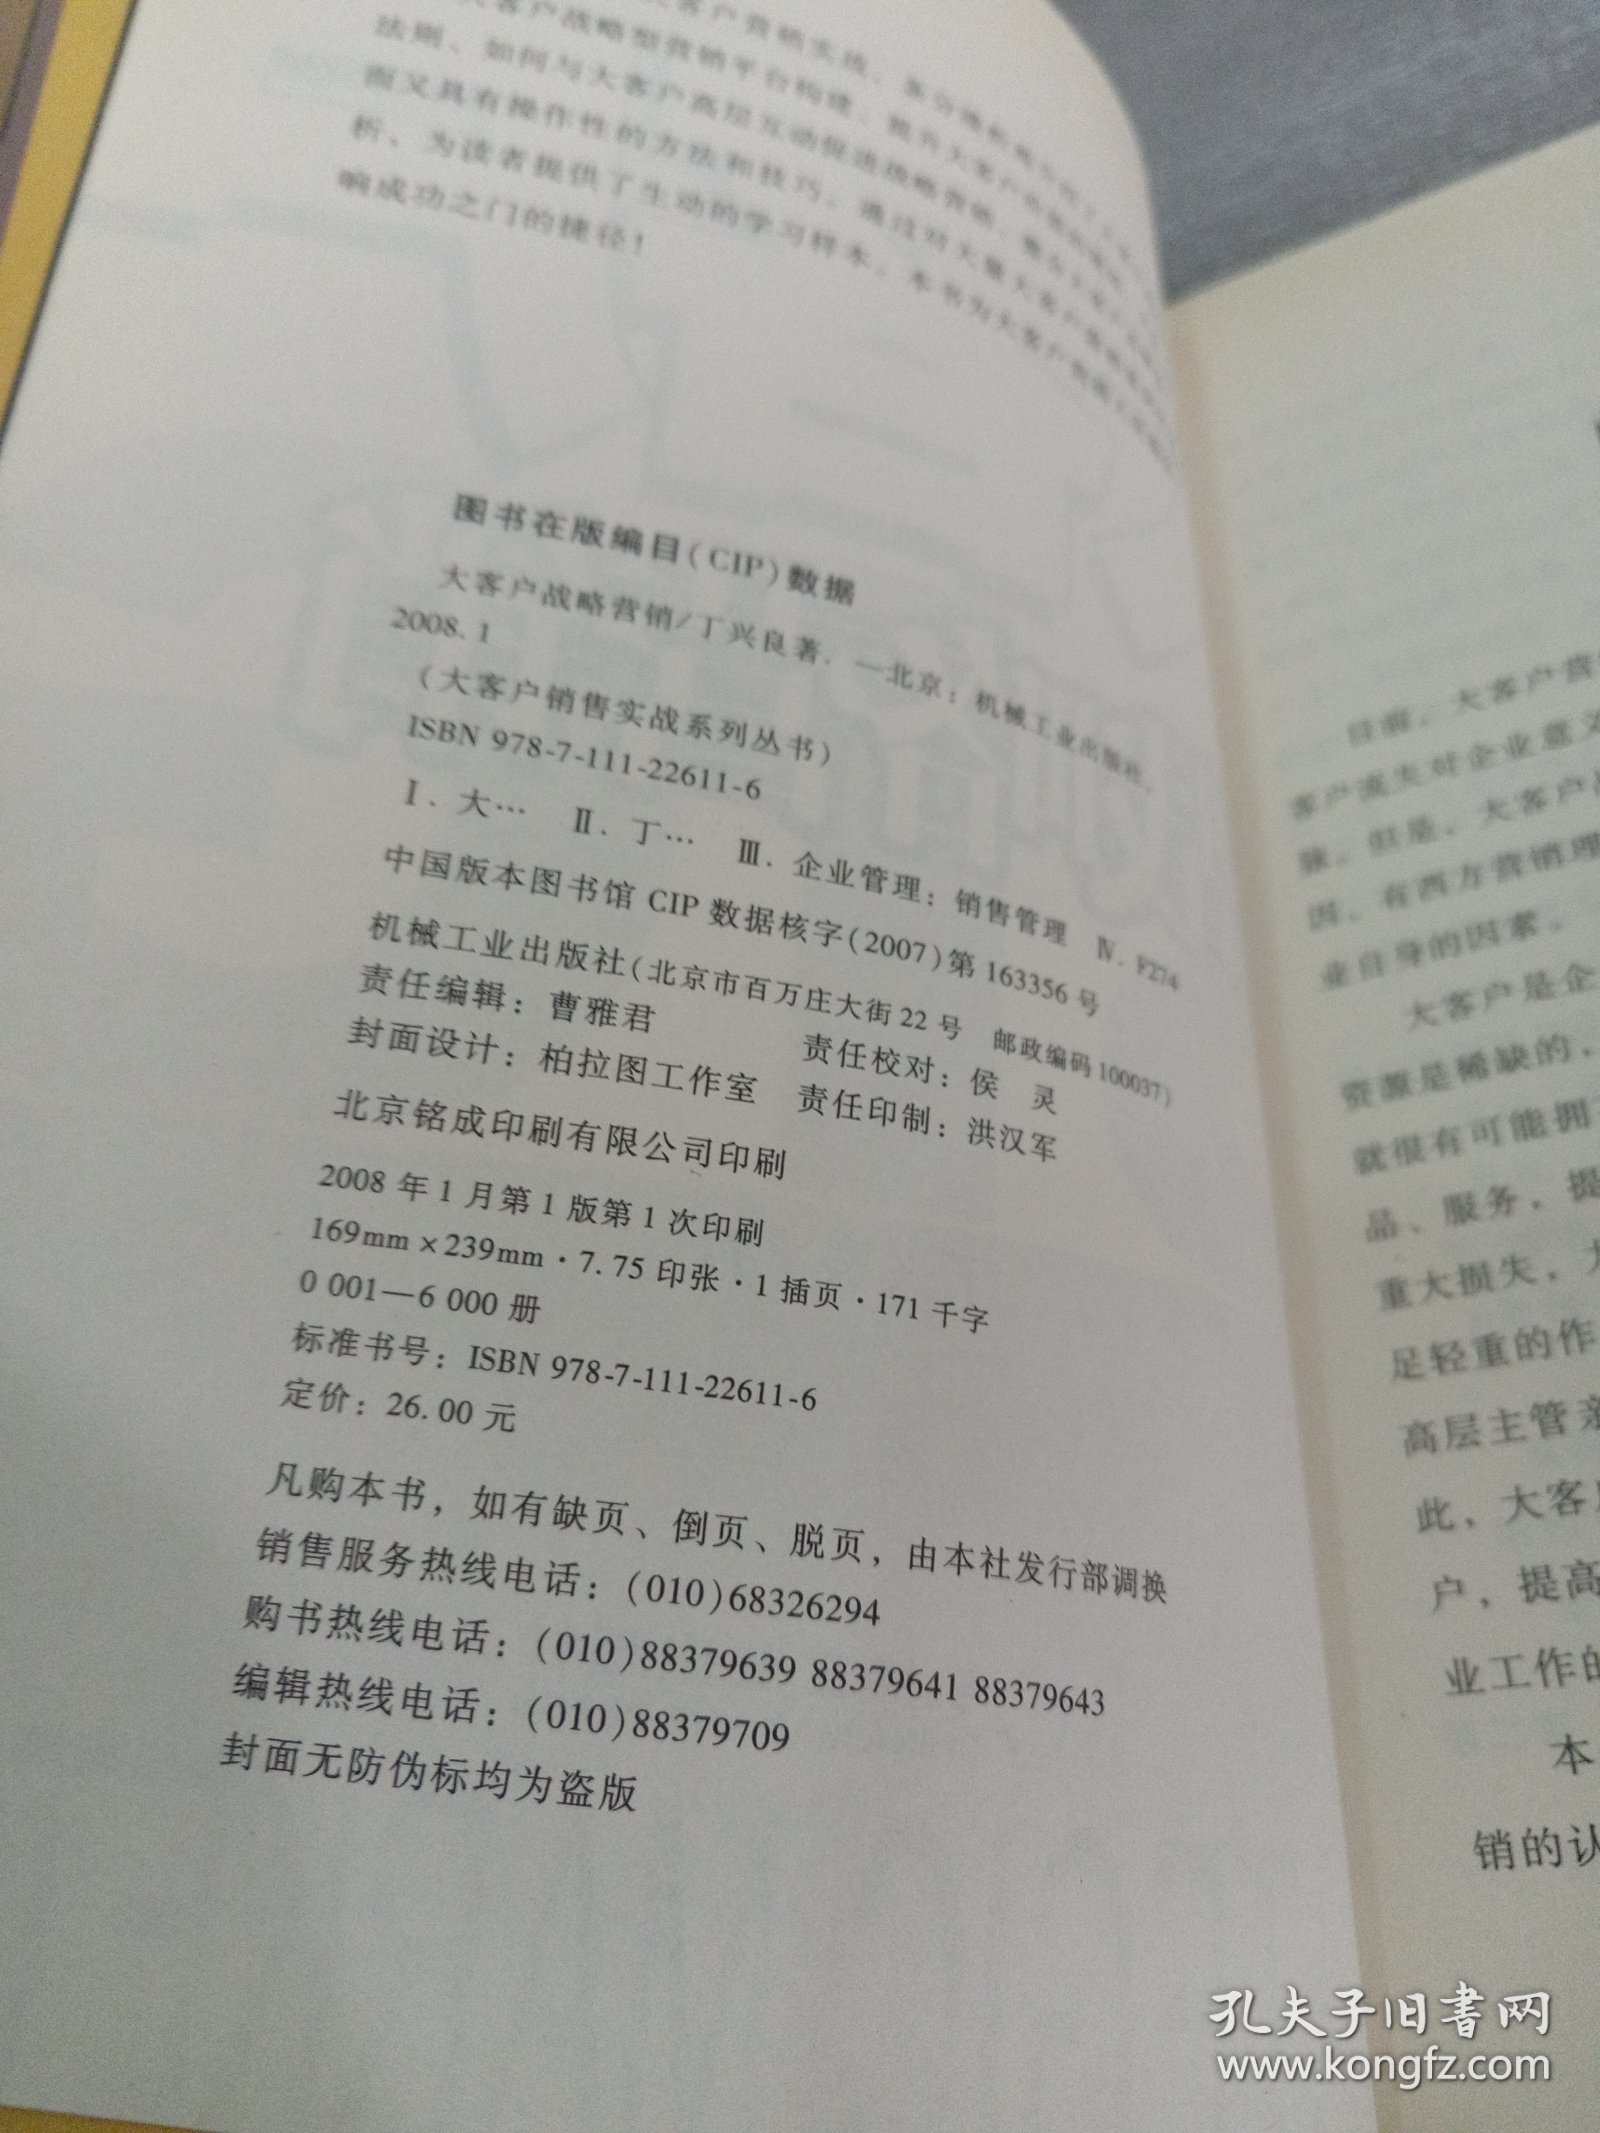 法则、如何与大客户高层互动促进战略营销、
而又具有操作性的方法和技巧。通过对大量大客户
析，为读者提供了生动的学习样本。本书为大客户
响成功之门的捷径！
图书在版编目(CIP)数据
大客户战略营销/丁兴良著．—北京：机械工业出版社，
2008.1
（大客户销售实战系列丛书）
ISBN 978-7-111-22611-6
Ⅰ．大… Ⅱ．丁… Ⅲ．企业管理：销售管理 Ⅳ．F274
中国版本图书馆 CIP 数据核字(2007)第 163356 号
机械工业出版社(北京市百万庄大街 22 号 邮政编码 100037)
责任编辑：曹雅君 责任校对：侯 灵
封面设计：柏拉图工作室 责任印制：洪汉军
北京铭成印刷有限公司印刷
2008 年 1 月第 1 版第 1 次印刷
169mm×239mm·7.75 印张·1 插页·171 千字
0 001—6 000 册
标准书号：ISBN 978-7-111-22611-6
定价：26.00 元
凡购本书，如有缺页、倒页、脱页，由本社发行部调换
销售服务热线电话：(010)68326294
购书热线电话：(010)88379639 88379641 88379643
编辑热线电话：(010)88379709
封面无防伪标均为盗版
目前，大客户营
客户流失对企业意义
脉。但是，大客户
因，有西方营销理
业自身的因素。
大客户是企
资源是稀缺的，
就很有可能拥
品、服务，提
重大损失，大
足轻重的作
高层主管亲
此，大客户
户，提高
业工作的
本
销的认
孔夫子旧书网
www.kongfz.com